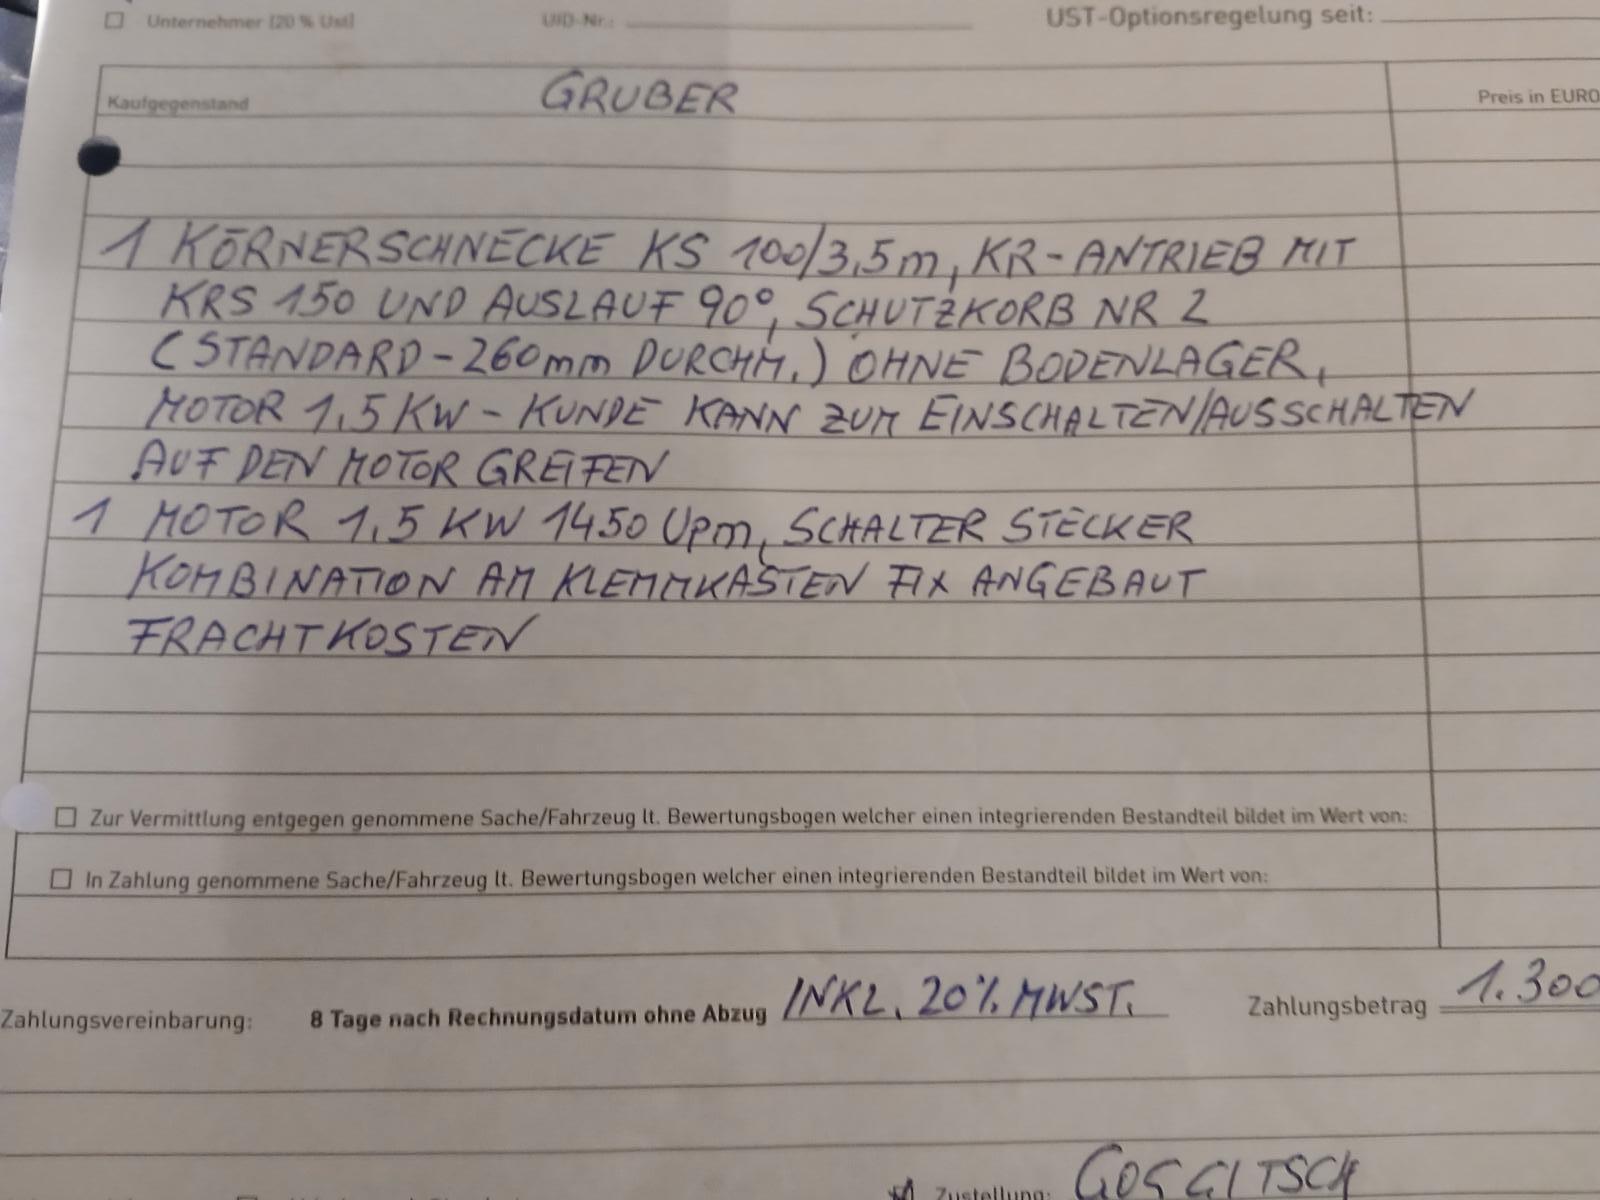 Unternehmer (20 % Ust) UID-Nr.: UST-Optionsregelung seit:
Kaufgegenstand GRUBER Preis in EURO
1 KÖRNERSCHNECKE KS 100/3,5m, KR-ANTRIEB MIT
KRS 150 UND AUSLAUF 90°, SCHUTZKORB NR 2
(STANDARD-260mm DURCHM.) OHNE BODENLAGER,
MOTOR 1,5 KW - KUNDE KANN ZUM EINSCHALTEN/AUSSCHALTEN
AUF DEN MOTOR GREIFEN
1 MOTOR 1,5 KW 1450 Upm, SCHALTER STECKER
KOMBINATION AM KLEMMKASTEN FIX ANGEBAUT
FRACHTKOSTEN
Zur Vermittlung entgegen genommene Sache/Fahrzeug lt. Bewertungsbogen welcher einen integrierenden Bestandteil bildet im Wert von:
In Zahlung genommene Sache/Fahrzeug lt. Bewertungsbogen welcher einen integrierenden Bestandteil bildet im Wert von:
Zahlungsvereinbarung: 8 Tage nach Rechnungsdatum ohne Abzug INKL. 20% MWST. Zahlungsbetrag 1.300
Zustellung: GOGGITSCH